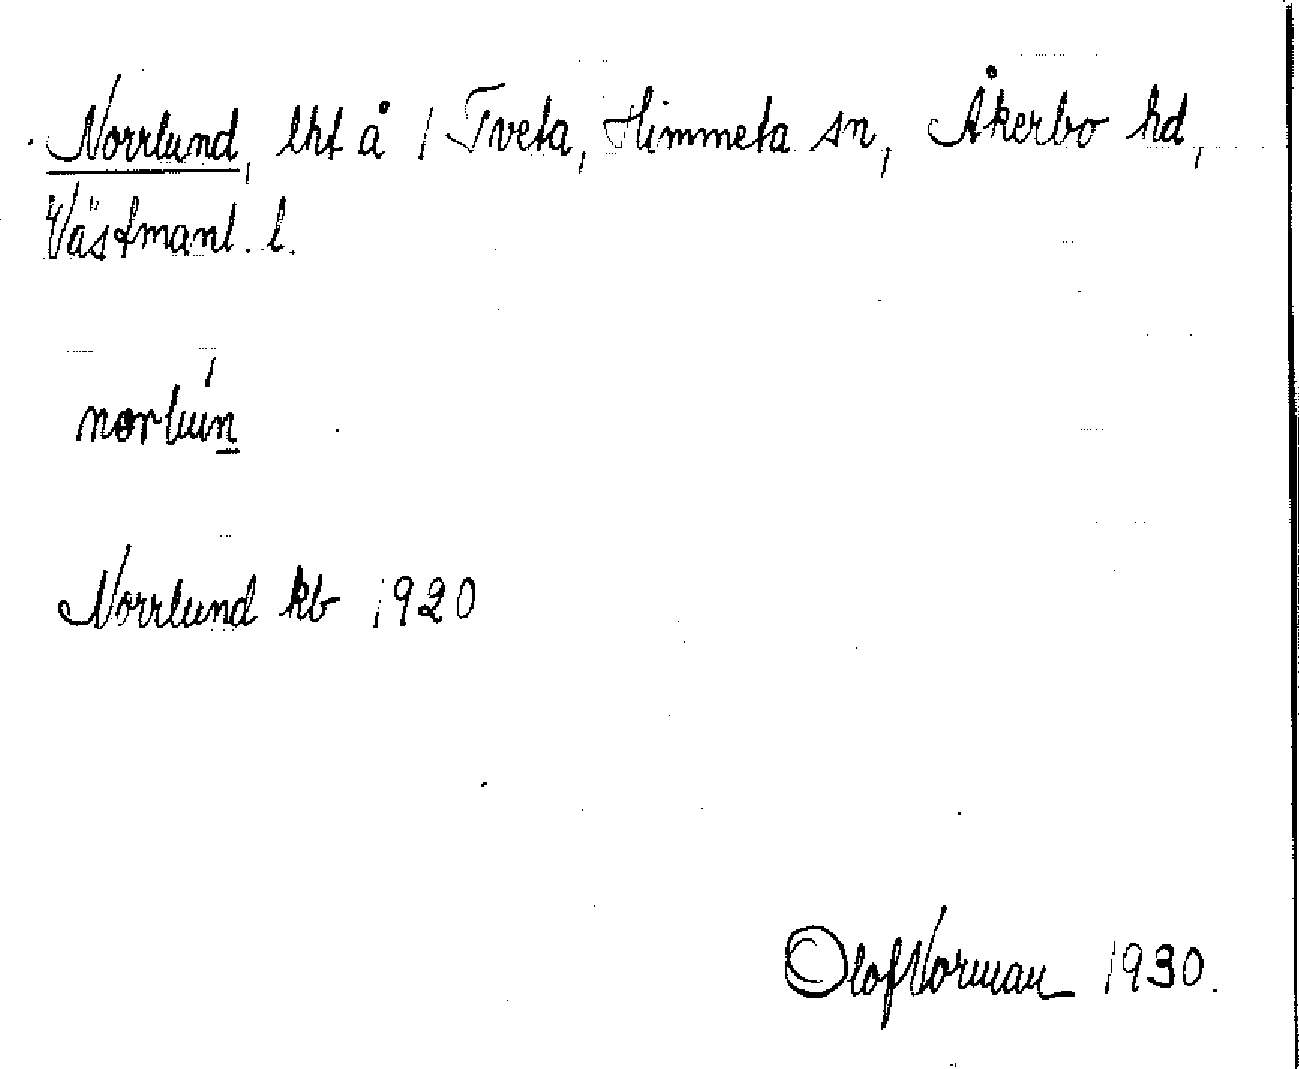 Norrlund, lht å 1 Tveta, Himmeta sn, Åkerbo hd,
Västmanl. l.
norlun
Norrlund kb 1920
Olof Norman 1930.